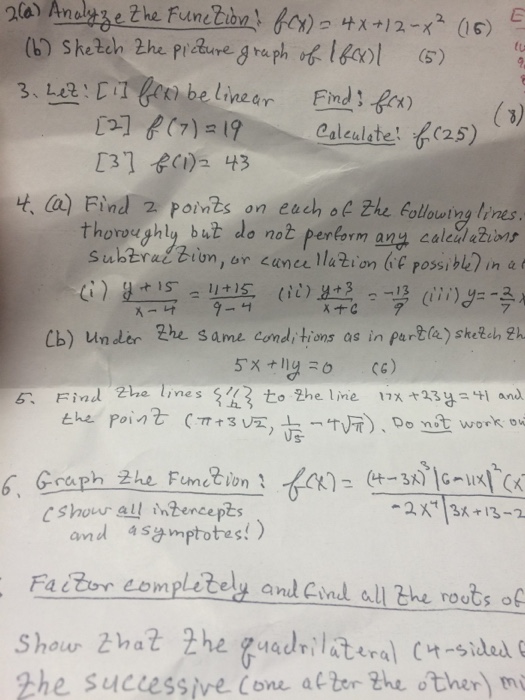 2(a) Analyze the Function: f(x) = 4x+12-x² (15)
(b) Sketch the picture graph of |f(x)| (5)
3. Let: [1] f(x) be linear Find: f(x) (8)
[2] f(7) = 19 Calculate: f(25)
[3] f(1) = 43
4. (a) Find 2 points on each of the following lines.
thoroughly but do not perform any calculations
subtraction, or cancellation (if possible) in a
(i) (y+15)/(x-4) = (11+15)/(9-4) (ii) (y+3)/(x+6) = -13/9 (iii) y = -2/7 x
(b) Under the same conditions as in part (a) sketch th
5x + 11y = 0 (6)
5. Find the lines {"/⊥} to the line 17x + 23y = 41 and
the point (π+3√2, 1/√5 - 4√π). Do not work ou
6. Graph the Function: f(x) = (4-3x)³|6-11x|²(x
(show all intercepts -2x⁴|3x+13-2
and asymptotes!)
Factor completely and find all the roots of
Show that the quadrilateral (4-sided
the successive (one after the other) m